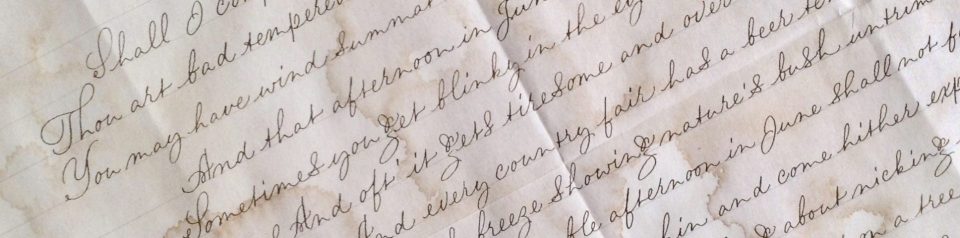 Shall I
Thou art bad tempered
You may have wind summat
And that afternoon in June
Sometimes you get blinky in the
And oft it gets tiresome and over
every country fair has a beer
breeze showing nature's bush untrim
afternoon in June shall not
and come hither
about nicking
a tree